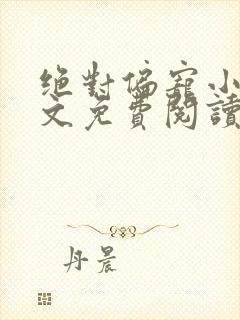 绝對偏寵小
文免費閱讀
丹晨